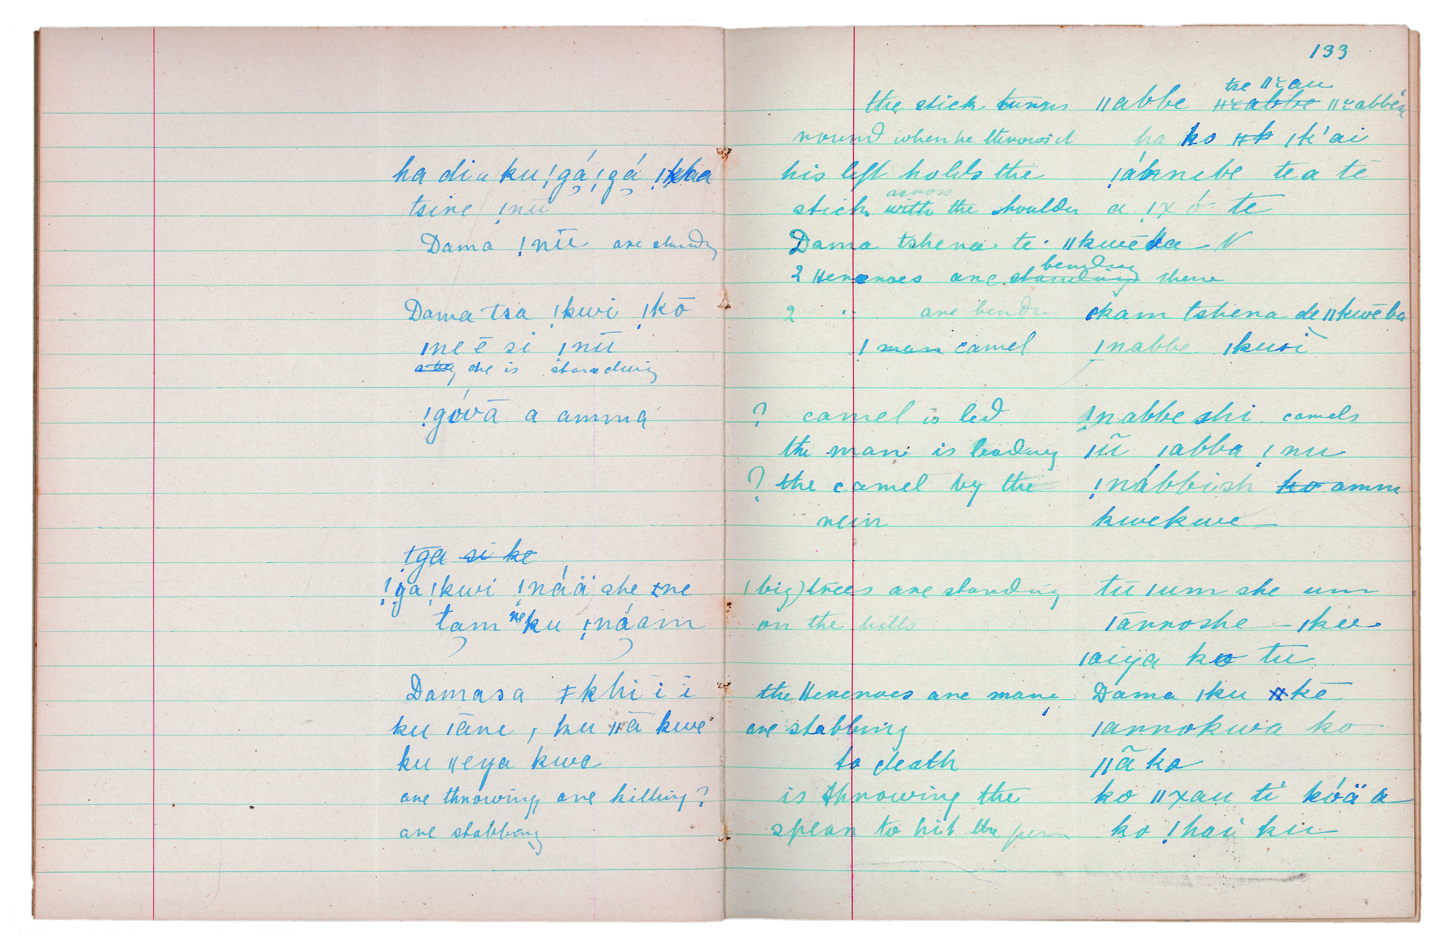 ha di ku !gá !gá
tsine !nū
Dama !nū are standing
Dama tsa !kwi !kō
ǀne ē si ǀnū
one is standing
!góvā a amma
tga si ke
!ga !kwi !náä she ne
tam ne ku !náam
Damasa ǂkhi i ī
ku ǀāne, ku ǁā kwe
ku ǁeya kwe
are throwing, are killing?
are stabbing
133
tse ǁxau
the stick turns ǁabbe ǁxabbe
round when he throws it ha ko ǀk'ai
his left holds the te a te
across
stick with the shoulder a !xó te
Dama tshena te ǁkwē
bending
2 Hereroes are standing there
2 " are bending ǀkam tshena de ǁkwēba
1 man camel !nabbe ǀkwi
? camel is led !nabbe shi camels
the man is leading ǀū ǀabba ǀnu
? the camel by the !nábbish ko amm
rein kwekwe
(big) trees are standing tu ǀum she um
on the hills ǀannoshe – ǀkee
ǀaiya ko tu
the Hereroes are many Dama ǀku ǂkē
are stabbing ǀannokwa ko
to death ǁā ko
is throwing the ko ǁxau ti kóä a
spear to hit the ko !hai ku